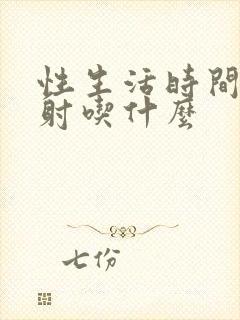 性生活時間
射喫什麼
七份